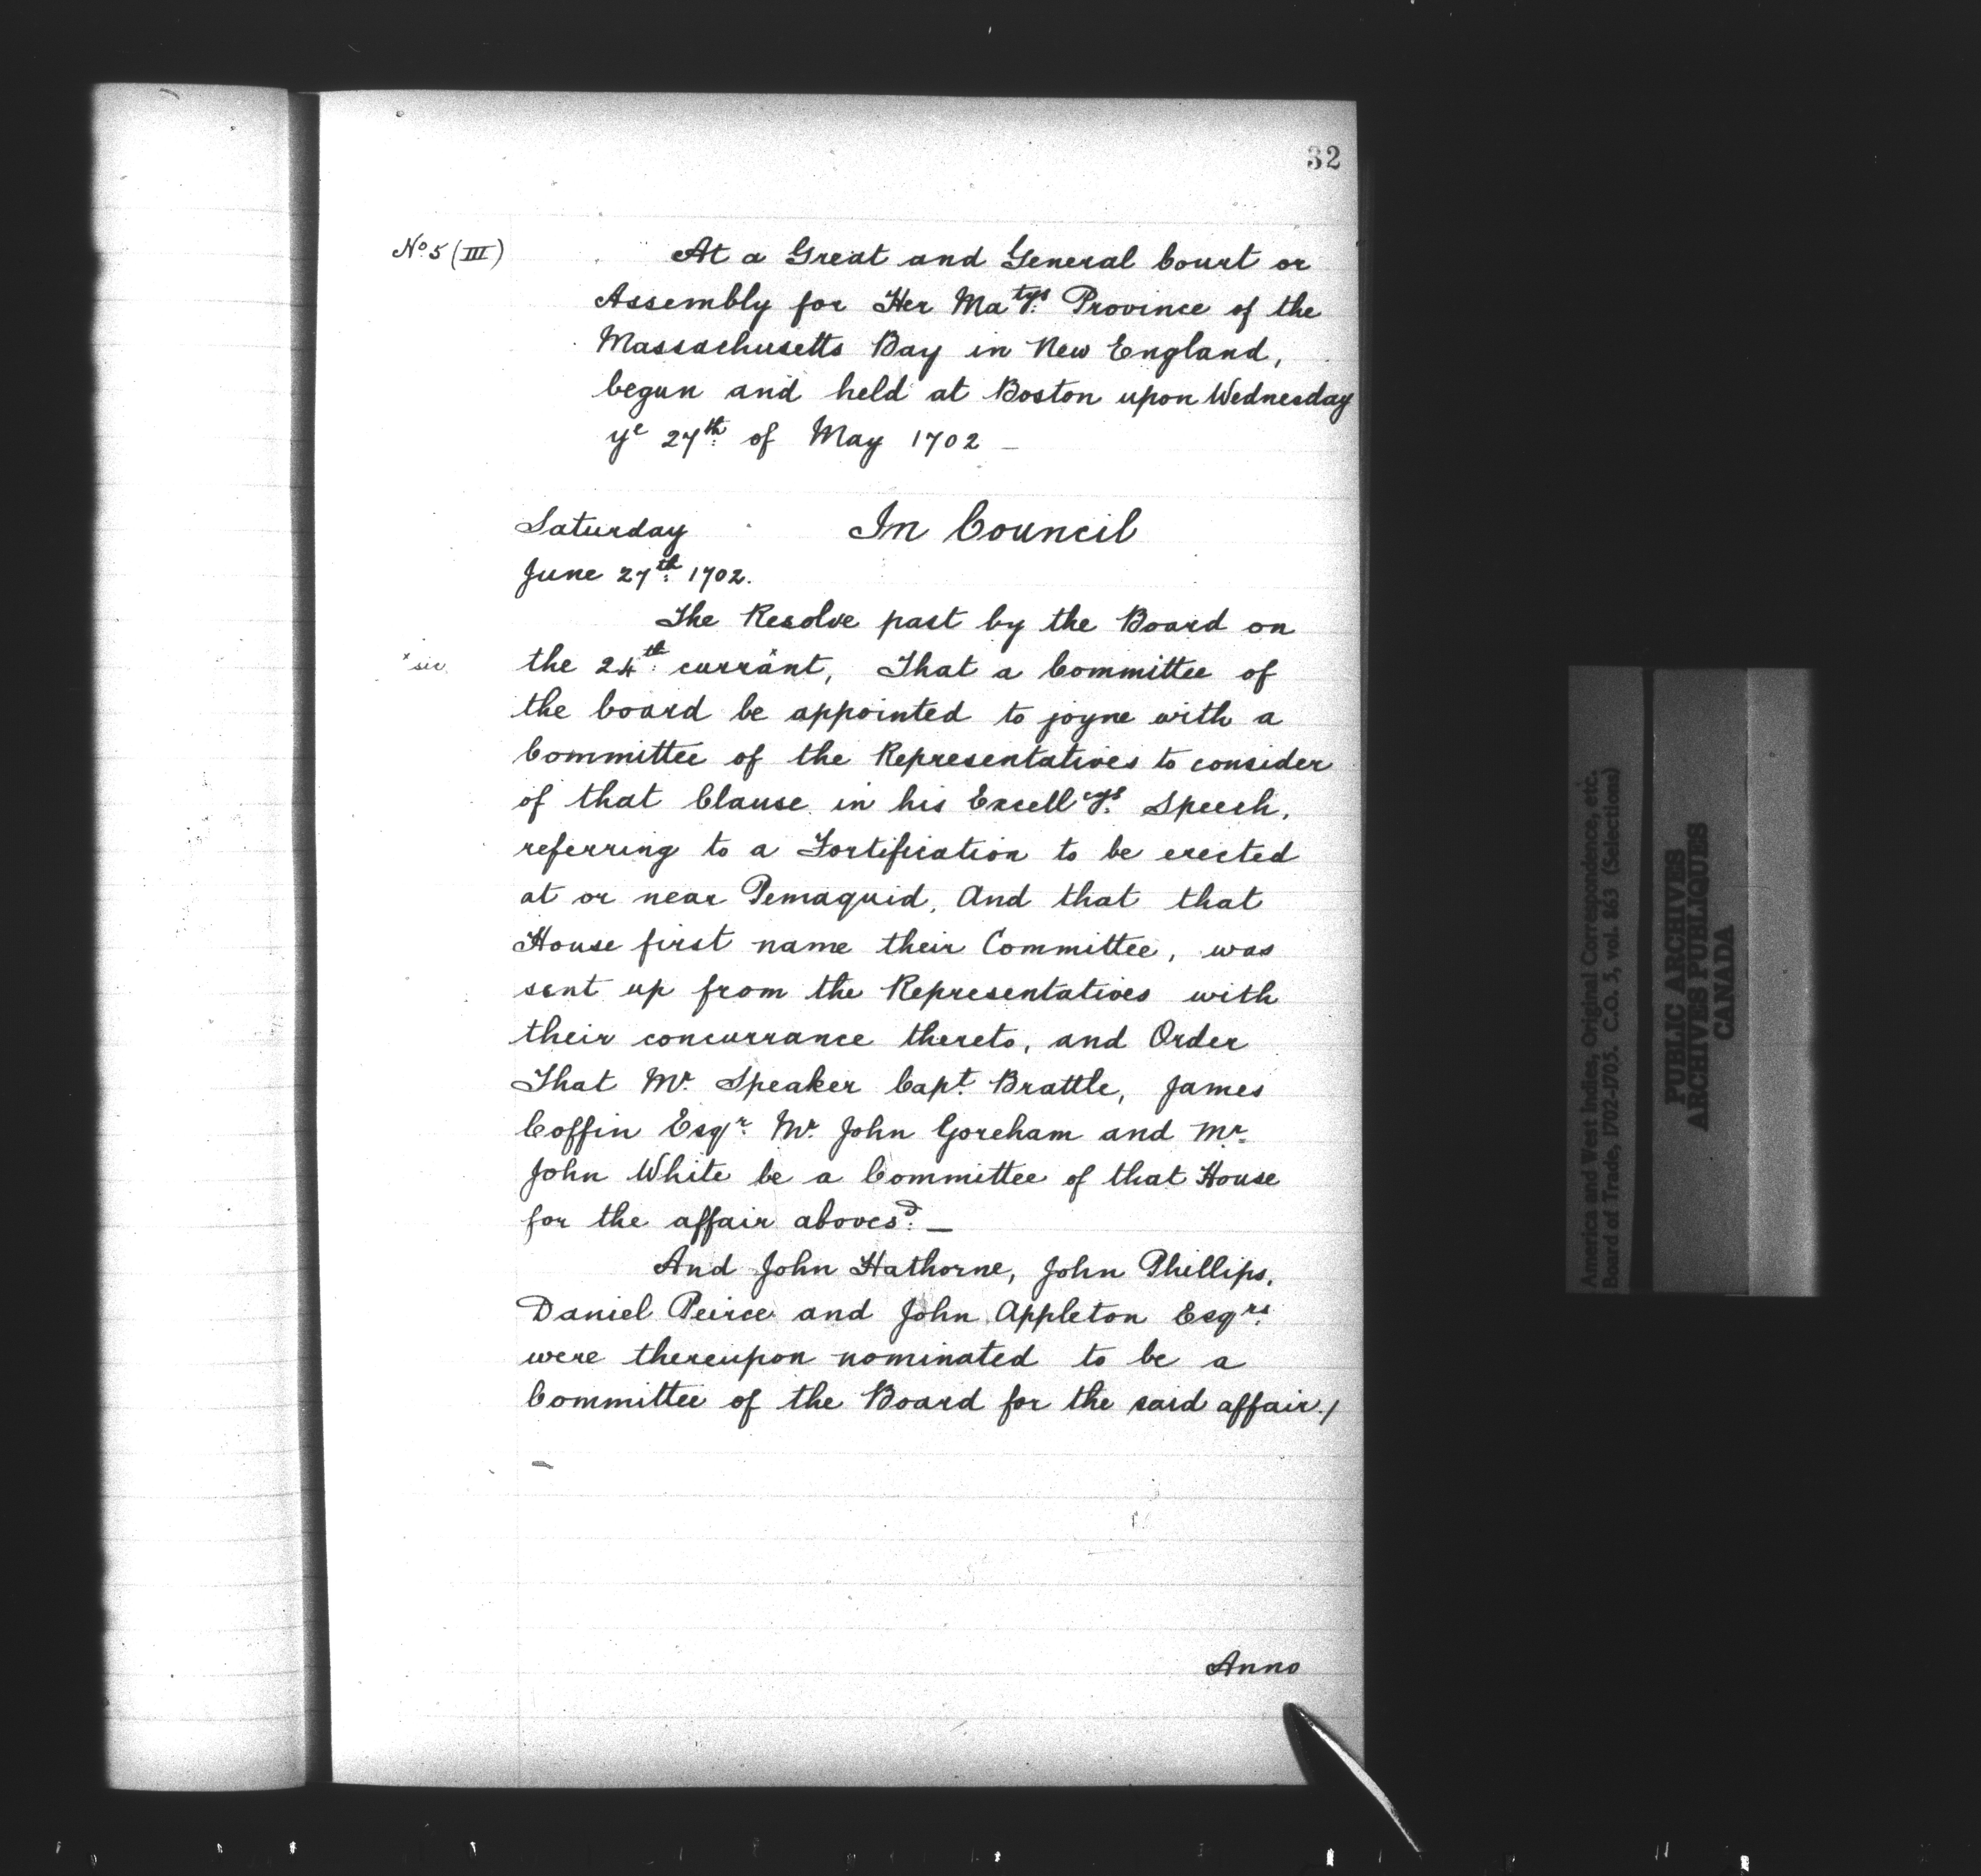 32
No 5 (III)
At a Great and General Court or
Assembly for Her Matys Province of the
Massachusetts Bay in New England,
begun and held at Boston upon Wednesday
ye 27th of May 1702 —
Saturday In Council
June 27th 1702.
The Resolve past by the Board on
x sic the 24th currant, That a Committee of
the board be appointed to joyne with a
Committee of the Representatives to consider
of that Clause in his Excellcys Speech,
referring to a Fortification to be erected
at or near Pemaquid, And that that
House first name their Committee, was
sent up from the Representatives with
their concurrance thereto, and Order
That Mr. Speaker Capt Brattle, James
Coffin Esqr. Mr. John Goreham and Mr.
John White be a Committee of that House
for the affair abovesd. —
And John Hathorne, John Phillips,
Daniel Peirce and John Appleton Esqrs.
were thereupon nominated to be a
Committee of the Board for the said affair./
Anno
America and West Indies, Original Correspondence, etc.
Board of Trade, 1702-1705. C.O. 5, vol. 863 (Selections)
PUBLIC ARCHIVES
ARCHIVES PUBLIQUES
CANADA